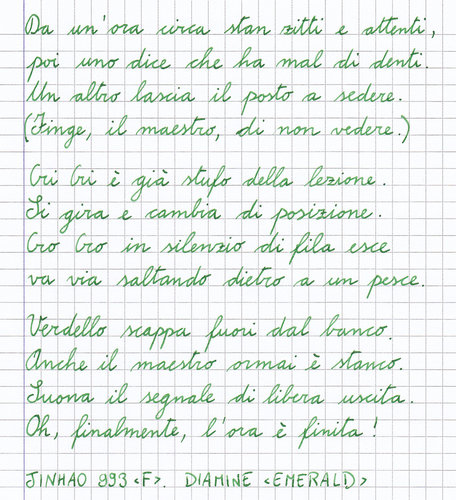 Da un'ora circa stan zitti e attenti,
poi uno dice che ha mal di denti.
Un altro lascia il posto a sedere.
(Finge, il maestro, di non vedere.)
Cri Cri è già stufo della lezione.
Si gira e cambia di posizione.
Cro Cro in silenzio di fila esce
va via saltando dietro a un pesce.
Verdello scappa fuori dal banco.
Anche il maestro ormai è stanco.
Suona il segnale di libera uscita.
Oh, finalmente, l'ora è finita!
JINHAO 993 <F>. DIAMINE <EMERALD>